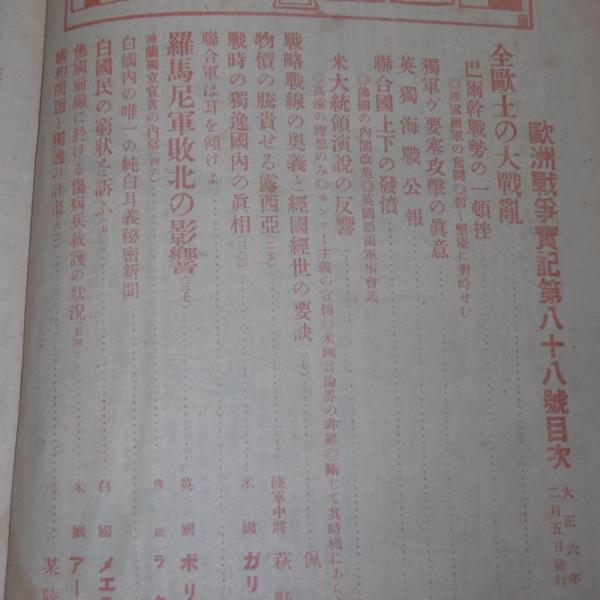 歐洲戰爭實記第八十八號目次
大正六年
二月五日發行
全歐土の大戰亂
巴爾幹戰勢の一頓挫
◎羅露兩軍の奮鬪◎暫く塹壕に對峙せむ
獨軍ヴ要塞攻擊の眞意
英獨海戰公報
聯合國上下の發憤
◎佛國の內閣改造◎英國屬領軍事會議
米大統領演說の反響
◎高遠の理想のみ◎モンロー主義の宣傳◎米國言論界の非難◎斷じて其時機にあら
戰略戰線の奧義と經國經世の要訣(一七) 佩
物價の騰貴せる露西亞(二五) 陸軍中將 萩野
戰時の獨逸國內の眞相(三〇) 米國 ガリ
聯合軍は耳を傾けよ
羅馬尼軍敗北の影響(三七) 英國 ポリ
波蘭獨立宣言の內幕(四六) ラ
白國內の唯一の純白耳義秘密新聞
白國民の窮狀を訴ふ(五〇) 白國 メエ
佛國前線に於ける傷病兵救護の狀況(五四) 米國 アー
媾和問題と獨逸の計畫(六一) 某陸